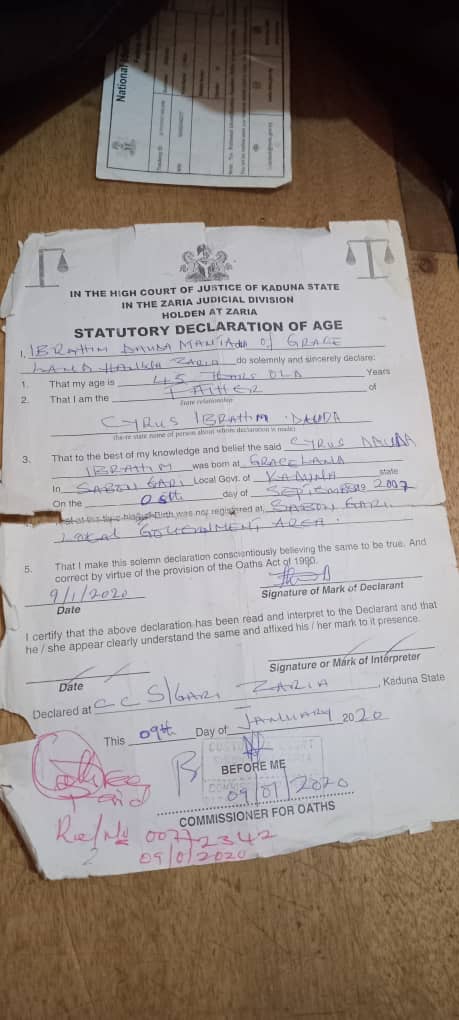 National
IN THE HIGH COURT OF JUSTICE OF KADUNA STATE
IN THE ZARIA JUDICIAL DIVISION
HOLDEN AT ZARIA
STATUTORY DECLARATION OF AGE
I, IBRAHIM DAUDA MANTIADA OF GRACE
LAND ZARIA do solemnly and sincerely declare:
1. That my age is 45 YEARS OLD Years
2. That I am the FATHER of
State relationship
CYRUS IBRAHIM DAUDA
(here state name of person about whom declaration is made)
3. That to the best of my knowledge and belief the said CYRUS DAUDA
IBRAHIM was born at GRACELAND
In SABON GARI Local Govt. of KADUNA state
On the 05th day of SEPTEMBER 2007
Birth was not registered at, SABON GARI
LOCAL GOVERNMENT AREA.
5. That I make this solemn declaration conscientiously believing the same to be true. And
correct by virtue of the provision of the Oaths Act of 1990.
9/1/2020
Date
Signature of Mark of Declarant
I certify that the above declaration has been read and interpret to the Declarant and that
he / she appear clearly understand the same and affixed his / her mark to it presence.
Date
Signature or Mark of Interpreter
Declared at C C S/GARI ZARIA, Kaduna State
This 09th Day of JANUARY 2020
BEFORE ME
09/01/2020
COMMISSIONER FOR OATHS
Paid
00772342
09/01/2020